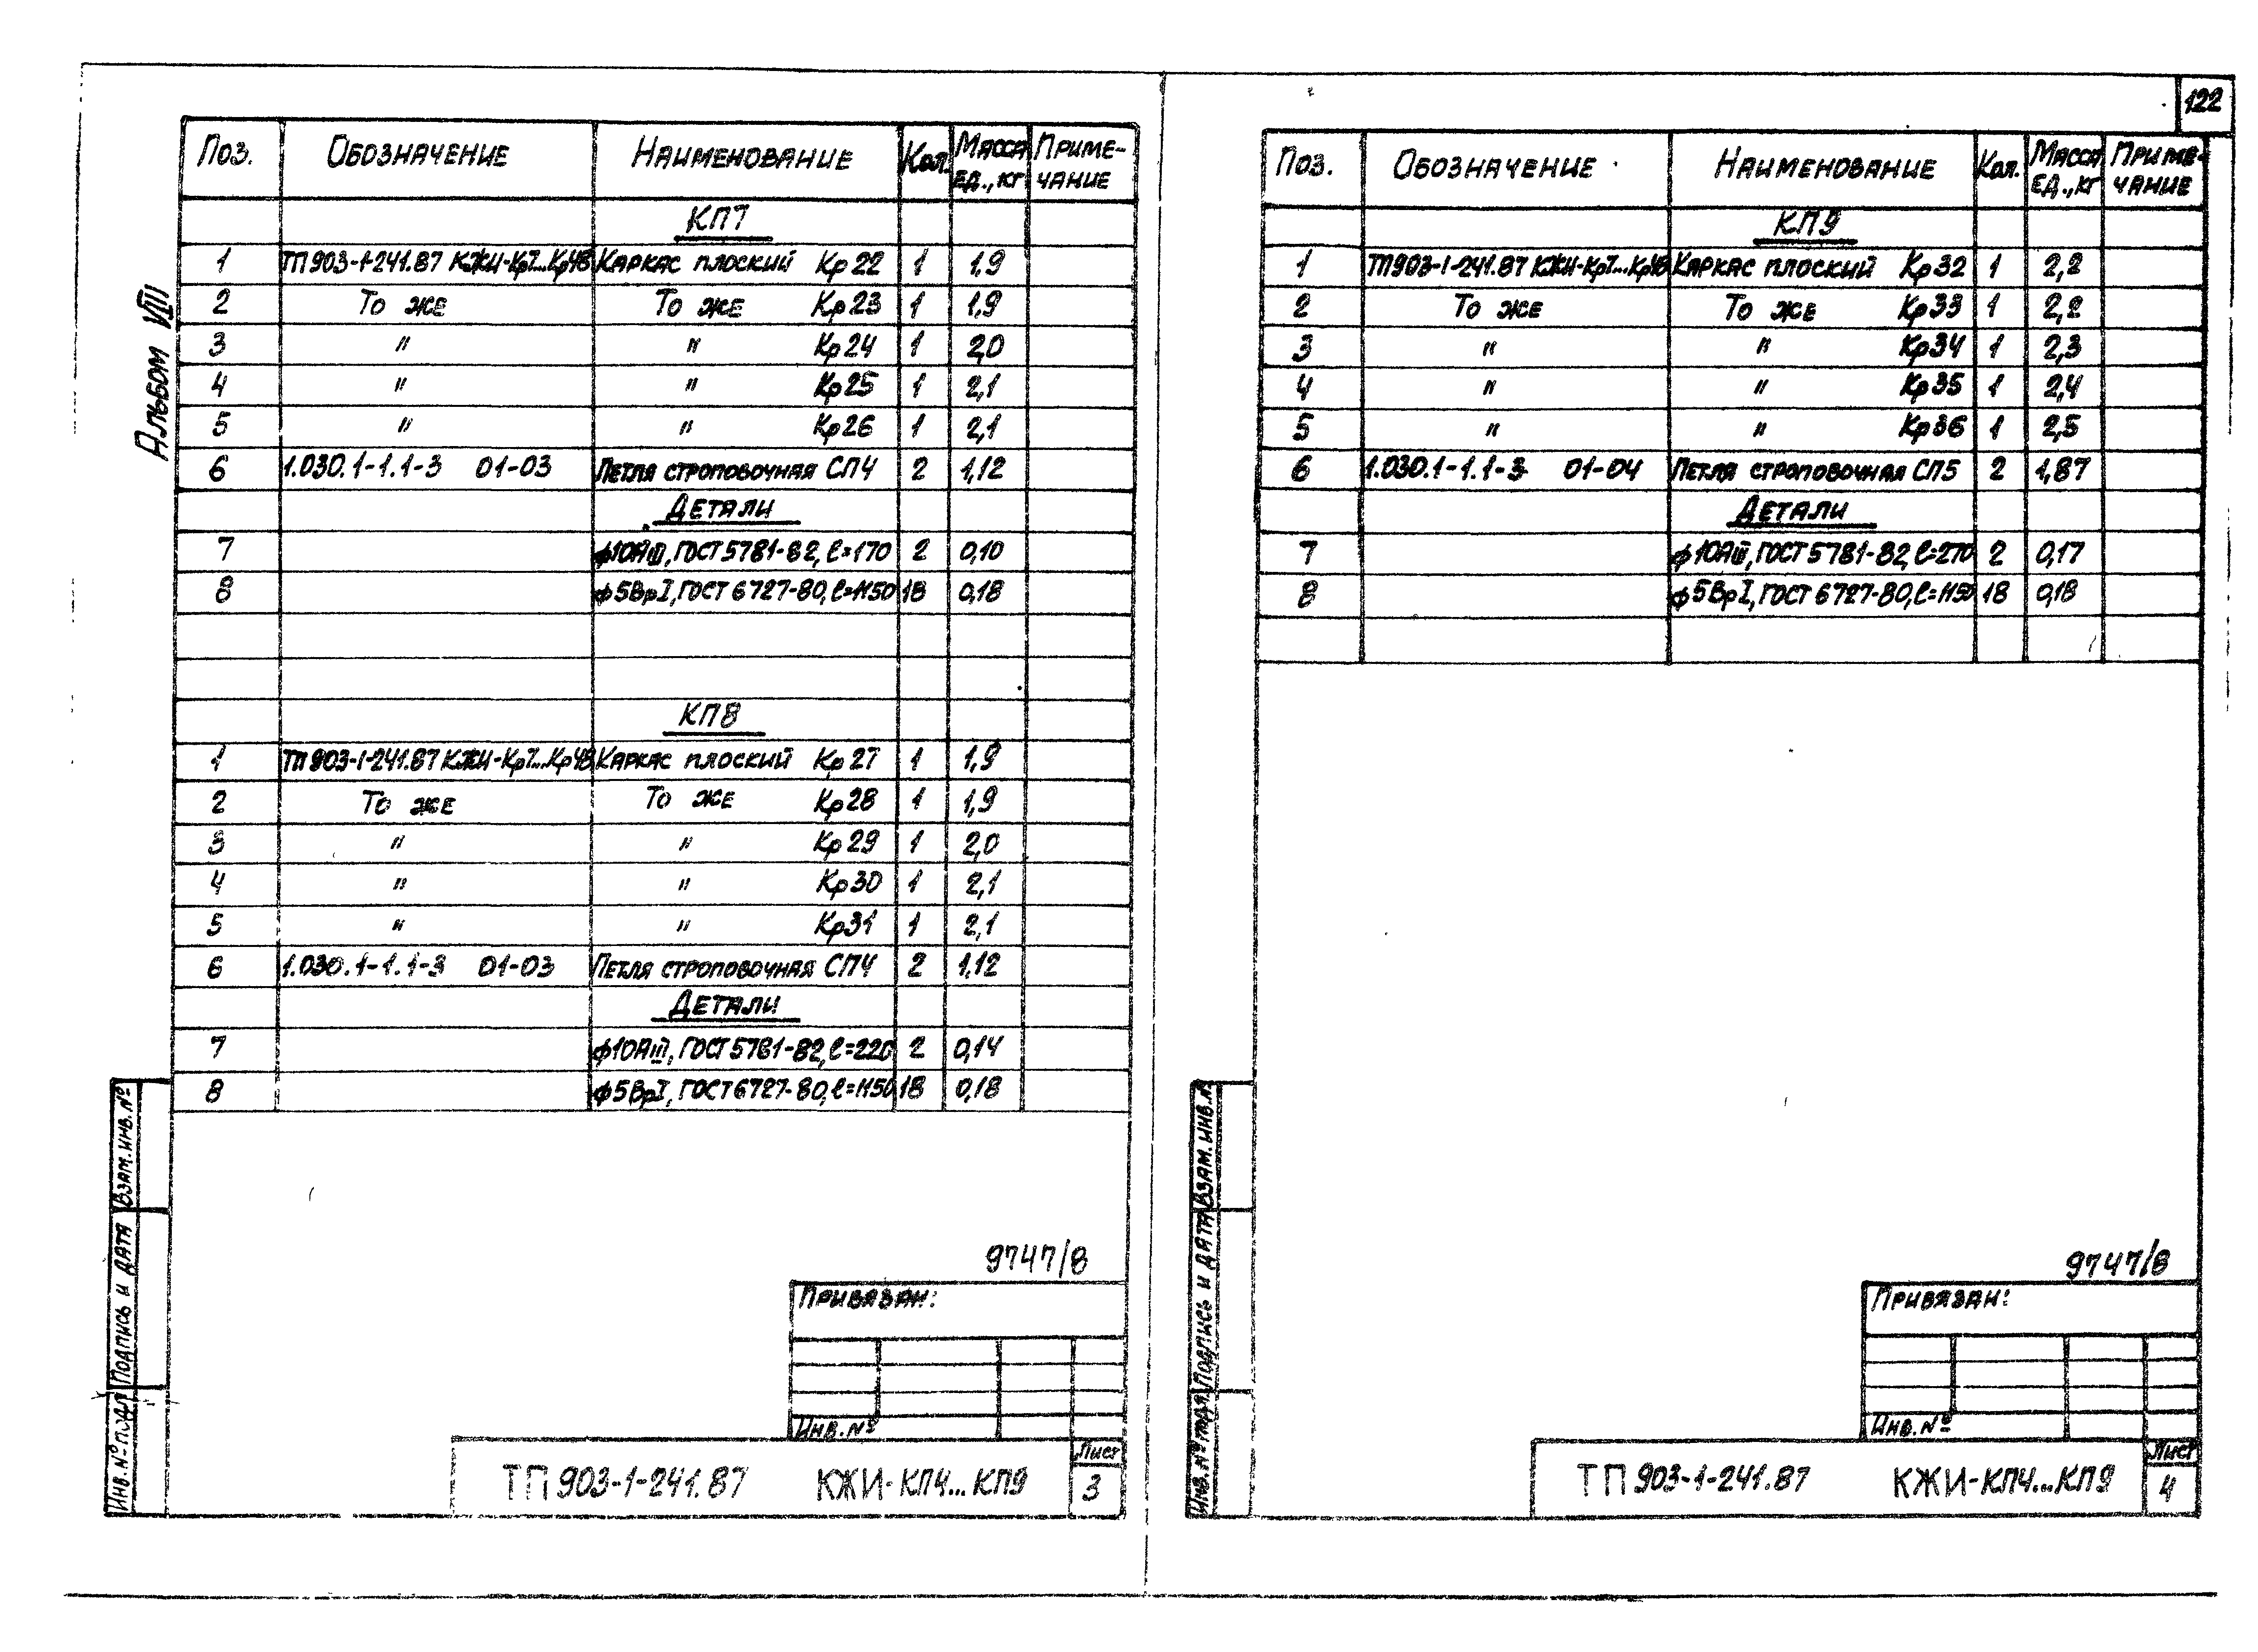 122
Альбом VIII
Поз. Обозначение Наименование Кол. Масса ед., кг Примечание
КП7
1 ТП903-1-241.87 КЖИ-Кр7...Кр48 Каркас плоский Кр22 1 1,9
2 То же То же Кр23 1 1,9
3 " " Кр24 1 2,0
4 " " Кр25 1 2,1
5 " " Кр26 1 2,1
6 1.030.1-1.1-3 01-03 Петля строповочная СП4 2 1,12
Детали
7 ф10АIII, ГОСТ 5781-82, ℓ=170 2 0,10
8 ф5ВрI, ГОСТ 6727-80, ℓ=1150 18 0,18
КП8
1 ТП903-1-241.87 КЖИ-Кр7...Кр48 Каркас плоский Кр27 1 1,9
2 То же То же Кр28 1 1,9
3 " " Кр29 1 2,0
4 " " Кр30 1 2,1
5 " " Кр31 1 2,1
6 1.030.1-1.1-3 01-03 Петля строповочная СП4 2 1,12
Детали
7 ф10АIII, ГОСТ 5781-82, ℓ=220 2 0,14
8 ф5ВрI, ГОСТ 6727-80, ℓ=1150 18 0,18
Взам. инв. №
Подпись и дата
Инв. № подл
9747/8
Привязан:
Инв. №
ТП 903-1-241.87 КЖИ-КП4...КП9
Лист
3
Поз. Обозначение Наименование Кол. Масса ед., кг Примечание
КП9
1 ТП903-1-241.87 КЖИ-Кр7...Кр48 Каркас плоский Кр32 1 2,2
2 То же То же Кр33 1 2,2
3 " " Кр34 1 2,3
4 " " Кр35 1 2,4
5 " " Кр36 1 2,5
6 1.030.1-1.1-3 01-04 Петля строповочная СП5 2 1,87
Детали
7 ф10АIII, ГОСТ 5781-82, ℓ=270 2 0,17
8 ф5ВрI, ГОСТ 6727-80, ℓ=1150 18 0,18
Взам. инв. №
Подпись и дата
Инв. № подл
9747/8
Привязан:
Инв. №
ТП 903-1-241.87 КЖИ-КП4...КП9
Лист
4